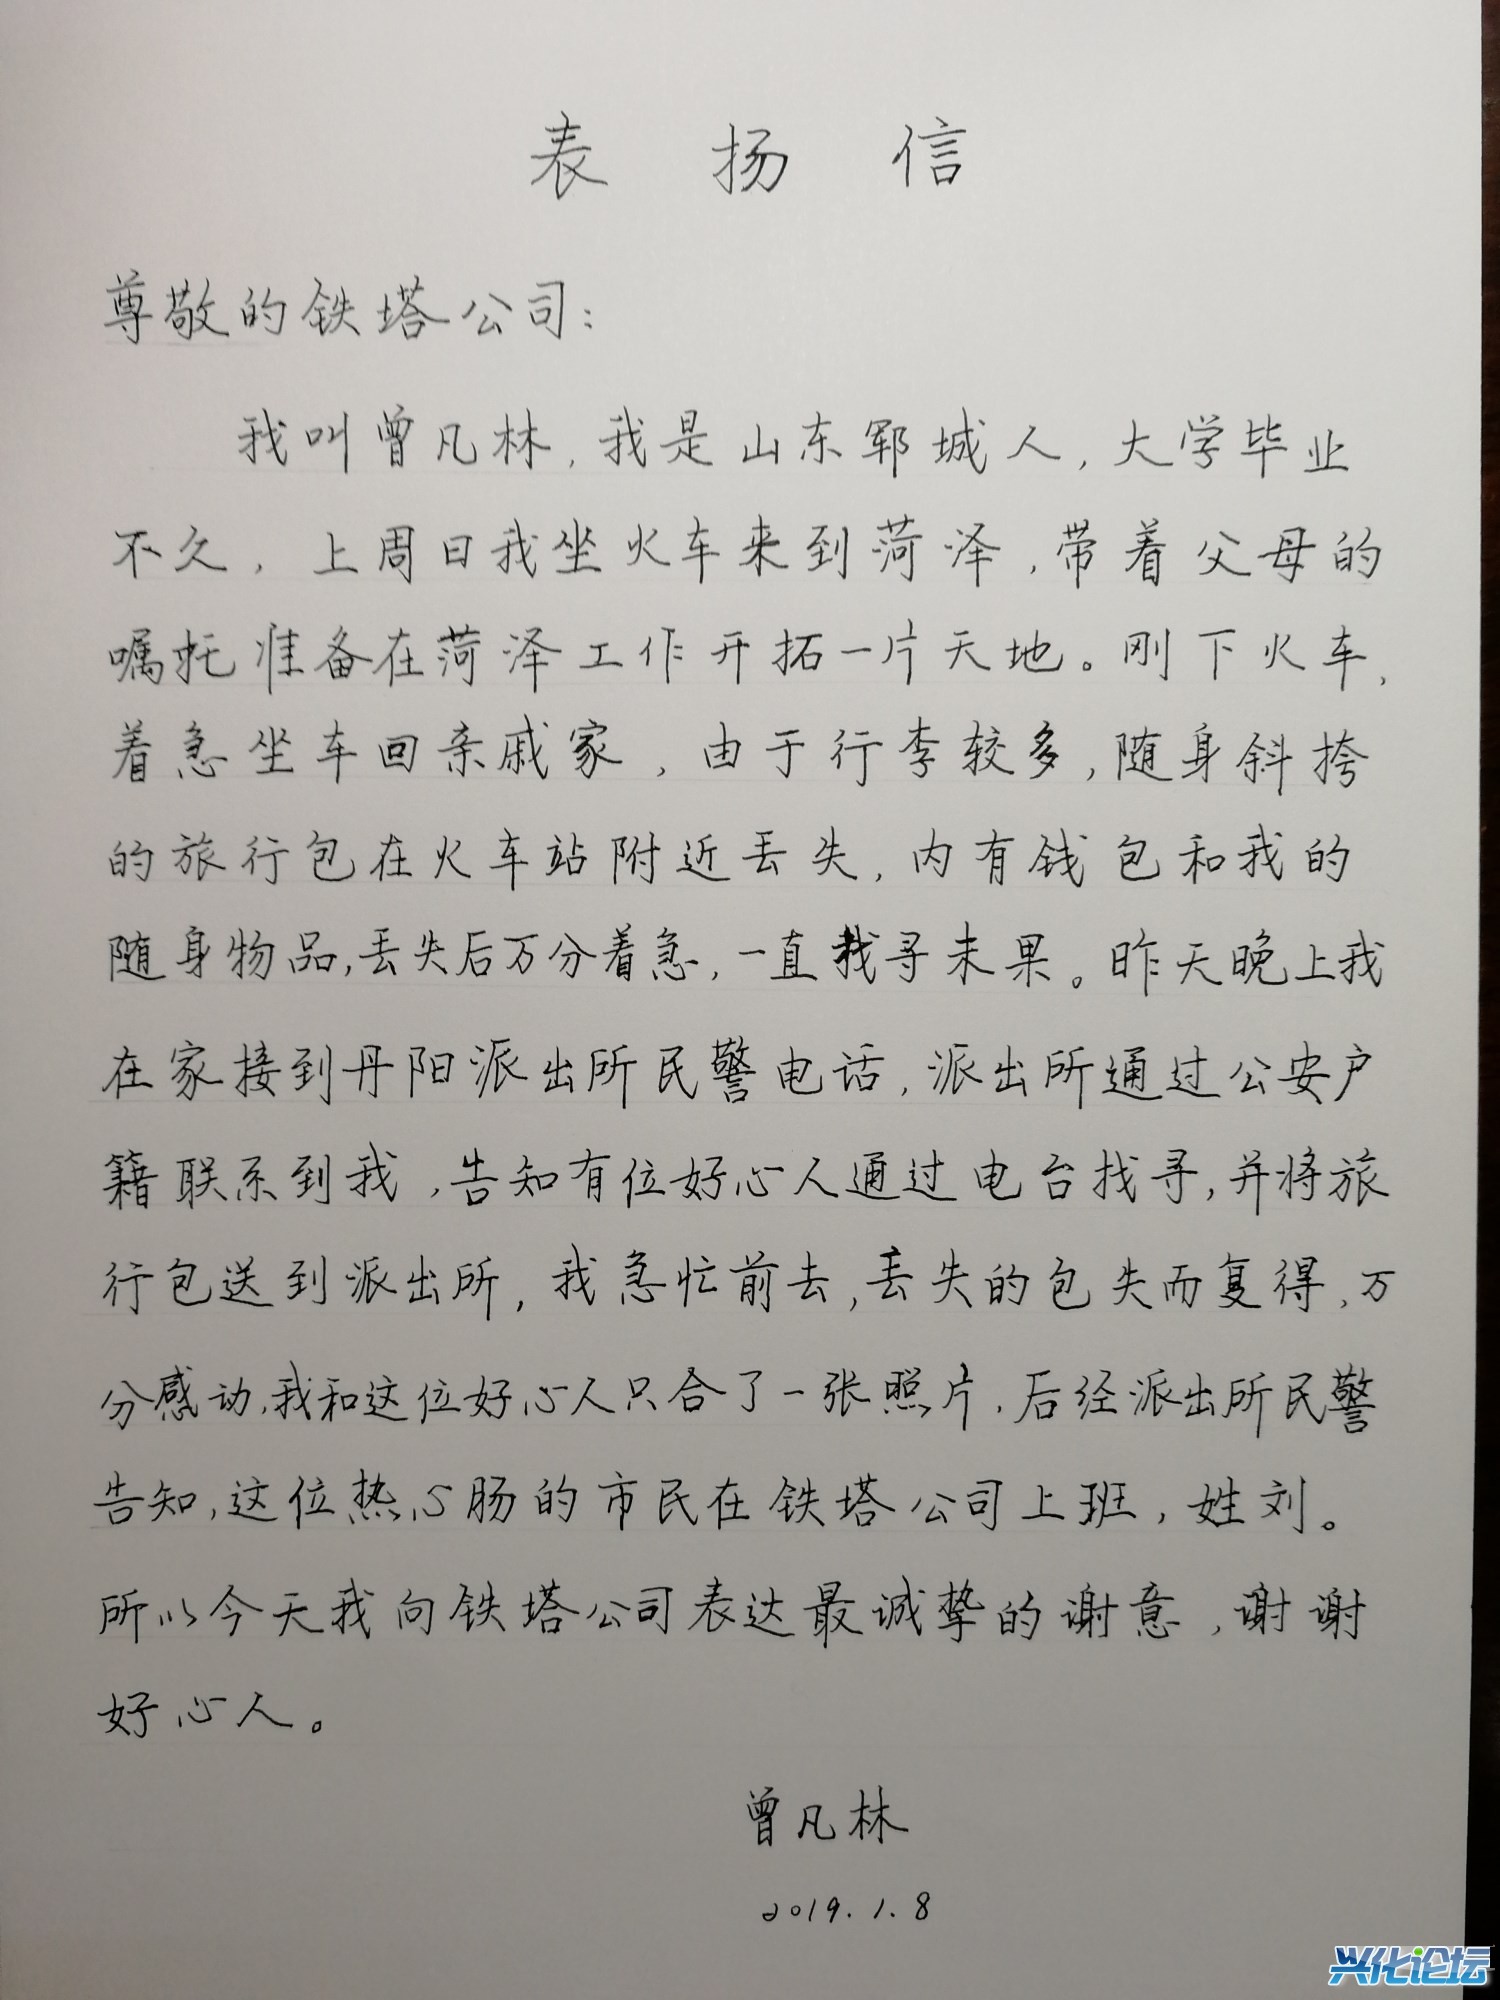 表扬信
尊敬的铁塔公司:
我叫曾凡林,我是山东郓城人,大学毕业
不久,上周日我坐火车来到菏泽,带着父母的
嘱托准备在菏泽工作开拓一片天地。刚下火车,
着急坐车回亲戚家,由于行李较多,随身斜挎
的旅行包在火车站附近丢失,内有钱包和我的
随身物品,丢失后万分着急,一直找寻未果。昨天晚上我
在家接到丹阳派出所民警电话,派出所通过公安户
籍联系到我,告知有位好心人通过电台找寻,并将旅
行包送到派出所,我急忙前去,丢失的包失而复得,万
分感动,我和这位好心人只合了一张照片,后经派出所民警
告知,这位热心肠的市民在铁塔公司上班,姓刘。
所以今天我向铁塔公司表达最诚挚的谢意,谢谢
好心人。
曾凡林
2019.1.8
兴化论坛